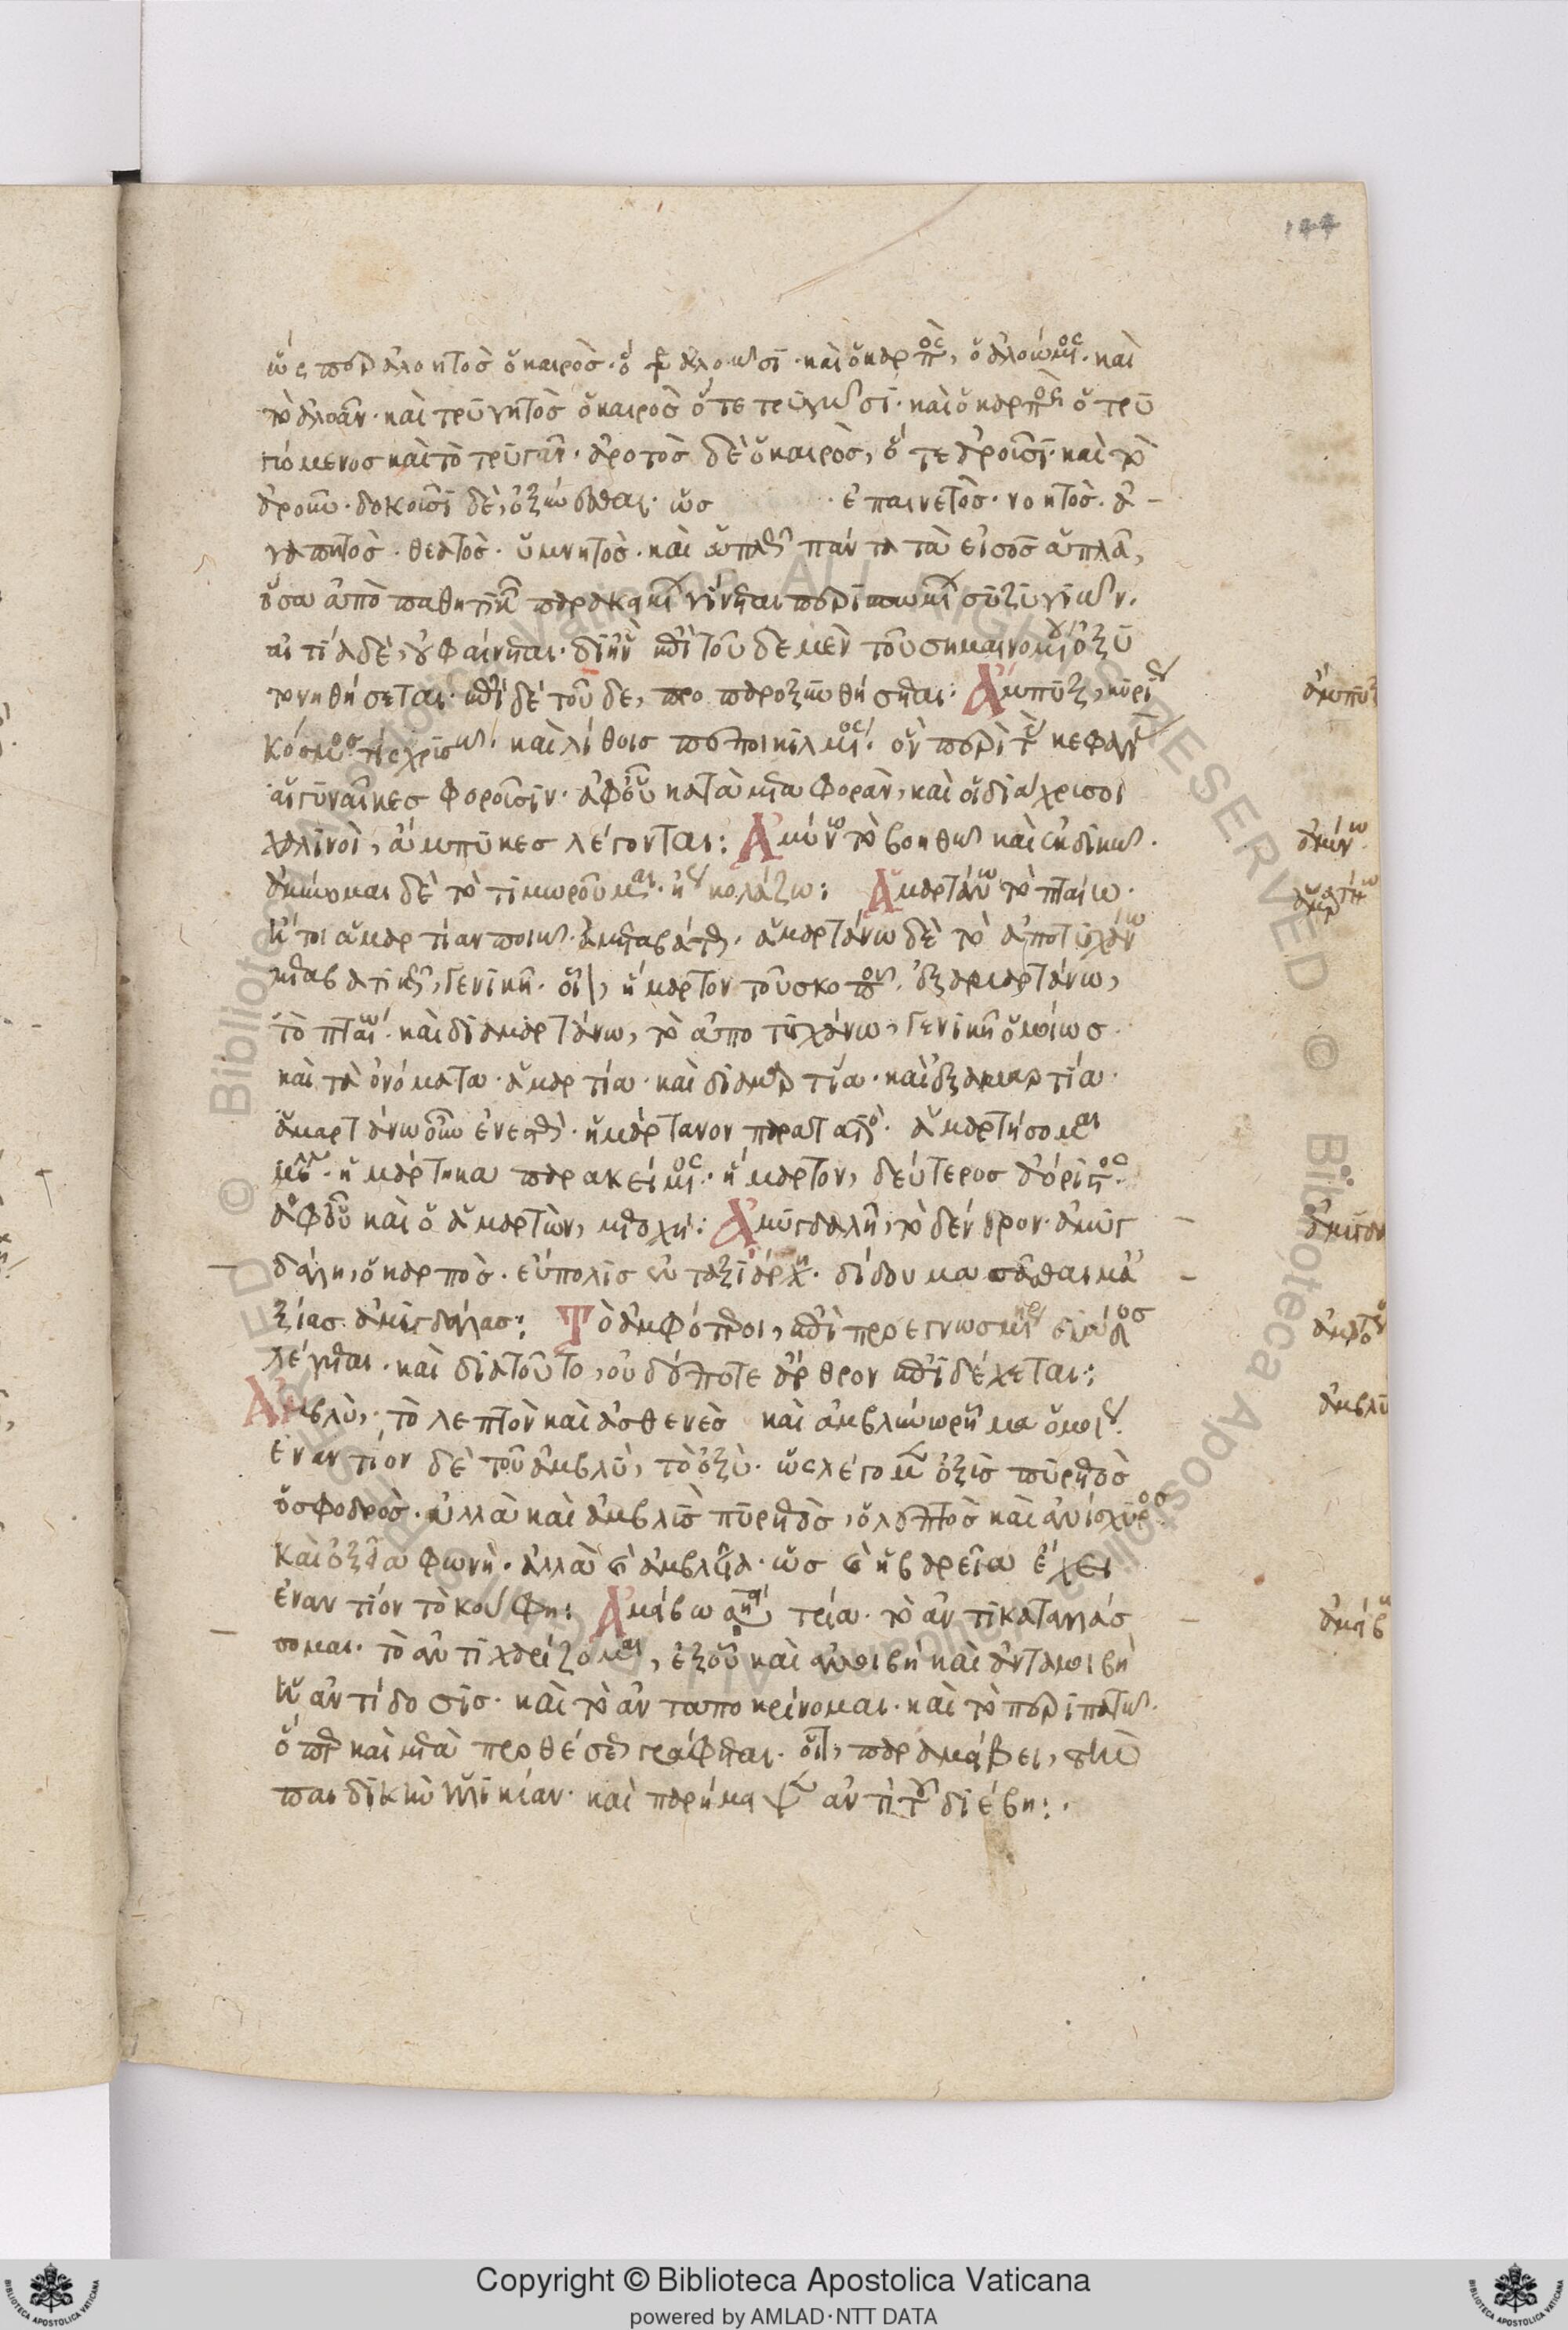 144
ὥς περ ἀλοητὸς ὁ καιρὸς· ὅτε ἀλοῶσι· καὶ ὁ καρπὸς, ὁ ἀλοώμενος· καὶ
τὸ ἀλοᾶν· καὶ τρυγητὸς ὁ καιρὸς ὅτε τρυγῶσι· καὶ ὁ καρπὸς ὁ τρυ
γώμενος καὶ τὸ τρυγᾶν· ἀροτὸς δὲ ὁ καιρὸς, ὅτε ἀροῦσι· καὶ τὸ
ἀροῦν· δοκοῦσι δὲ, ὀξύνεσθαι· ὡς · ἐπαινετὸς· νοητὸς· ἀ -
γαπητὸς· θεατὸς· ὑμνητὸς· καὶ ἁπλῶς πάντα τὰ εἰς ος ἁπλᾶ,
ὅσα ἀπὸ παθητικῶν παρακειμένων γίνεται περισπωμένων συζυγιῶν·
αἰτία δὲ, οὐ φαίνεται· δι' ἣν ἐπὶ τοῦδε μὲν τοῦ σημαινομένου ὀξυ
τονηθήσεται· ἐπὶ δὲ τοῦδε, προπαροξυνθήσεται: Ἄμπυξ, κυρίως
κόσμος τίς χρυσῷ· καὶ λίθοις πεποικιλμένος· ὃν περὶ τὰς κεφαλὰς
αἱ γυναῖκες φοροῦσιν· ἀφ' οὗ κατὰ μεταφορὰν, καὶ οἱ διάχρυσοι
χαλινοὶ, ἄμπυκες λέγονται: Ἀμύνω τὸ βοηθῶ καὶ ἐκδικῶ·
ἀμύνομαι δὲ τὸ τιμωροῦμαι· ἤγουν κολάζω: Ἁμαρτάνω τὸ πταίω·
ἤτοι ἁμαρτίαν ποιῶ· ἀμεταβάτως· ἁμαρτάνω δὲ τὸ ἀποτυγχάνω
μεταβατικῶς, γενικῇ· οἷον, ἥμαρτον τοῦ σκοποῦ· ἐξαμαρτάνω,
τὸ πταίω· καὶ διαμαρτάνω, τὸ ἀποτυγχάνω, γενικῇ ὁμοίως·
καὶ τὰ ὀνόματα· ἁμαρτία· καὶ διαμαρτία· καὶ ἐξαμαρτία·
ἁμαρτάνω οὖν ἐνεστὼς· ἡμάρτανον παρατατικός· ἁμαρτήσομαι
μέλλων· ἡμάρτηκα παρακείμενος· ἥμαρτον, δεύτερος ἀόριστος·
ἀφ' οὗ καὶ ὁ ἁμαρτὼν, μετοχή: Ἀμυγδαλῆ, τὸ δένδρον· ἀμυγ
δάλη, ὁ καρπὸς· εὔπολις ἐν ταξιάρχῃ· δίδου μασᾶσθαι να
ξίας ἀμυγδάλας: Τὸ ἀμφότεροι, ἐπὶ προεγνωσμένης δυάδος
λέγεται· καὶ διατοῦτο, οὐδέποτε ἄρθρον ἐπιδέχεται:
Ἀμβλὺ, τὸ λεπτὸν καὶ ἀσθενὲς καὶ ἀμβλύνω ῥῆμα ὁμοίως·
ἐναντίον δὲ τοῦ ἀμβλὺ, τὸ ὀξὺ· ὡς λέγομεν ὀξὺς πυρετὸς
ὁ σφοδρὸς· ἀλλὰ καὶ ἀμβλὺς πυρετὸς, ὁ λεπτὸς καὶ ἀνίσχυρος
καὶ ὀξεῖα φωνὴ· ἀλλὰ καὶ ἀμβλεῖα· ὡς καὶ ἡ βαρεῖα ἔχει
ἐναντίον τὸ κούφη: Ἀμείβω σημαίνει τρία· τὸ ἀντικαταλλάσ
σομαι· τὸ ἀντιχαρίζομαι, ἐξ οὗ καὶ ἀμοιβή καὶ ἀνταμοιβή
ἡ ἀντίδοσις· καὶ τὸ ἀνταποκρίνομαι· καὶ τὸ περιπατῶ·
ὅπερ καὶ μετὰ προθέσεως γράφεται· οἷον, παραμείβει, τὴν
παιδικὴν ἡλικίαν· καὶ παρήμειψεν ἀντὶ τοῦ διέβη:
ἄμπυξ
ἀμύνω
ἁμαρτάνω
ἀμυγδα
ἀμφότε
ἀμβλὺ
ἀμείβω
Copyright © Biblioteca Apostolica Vaticana
powered by AMLAD·NTT DATA